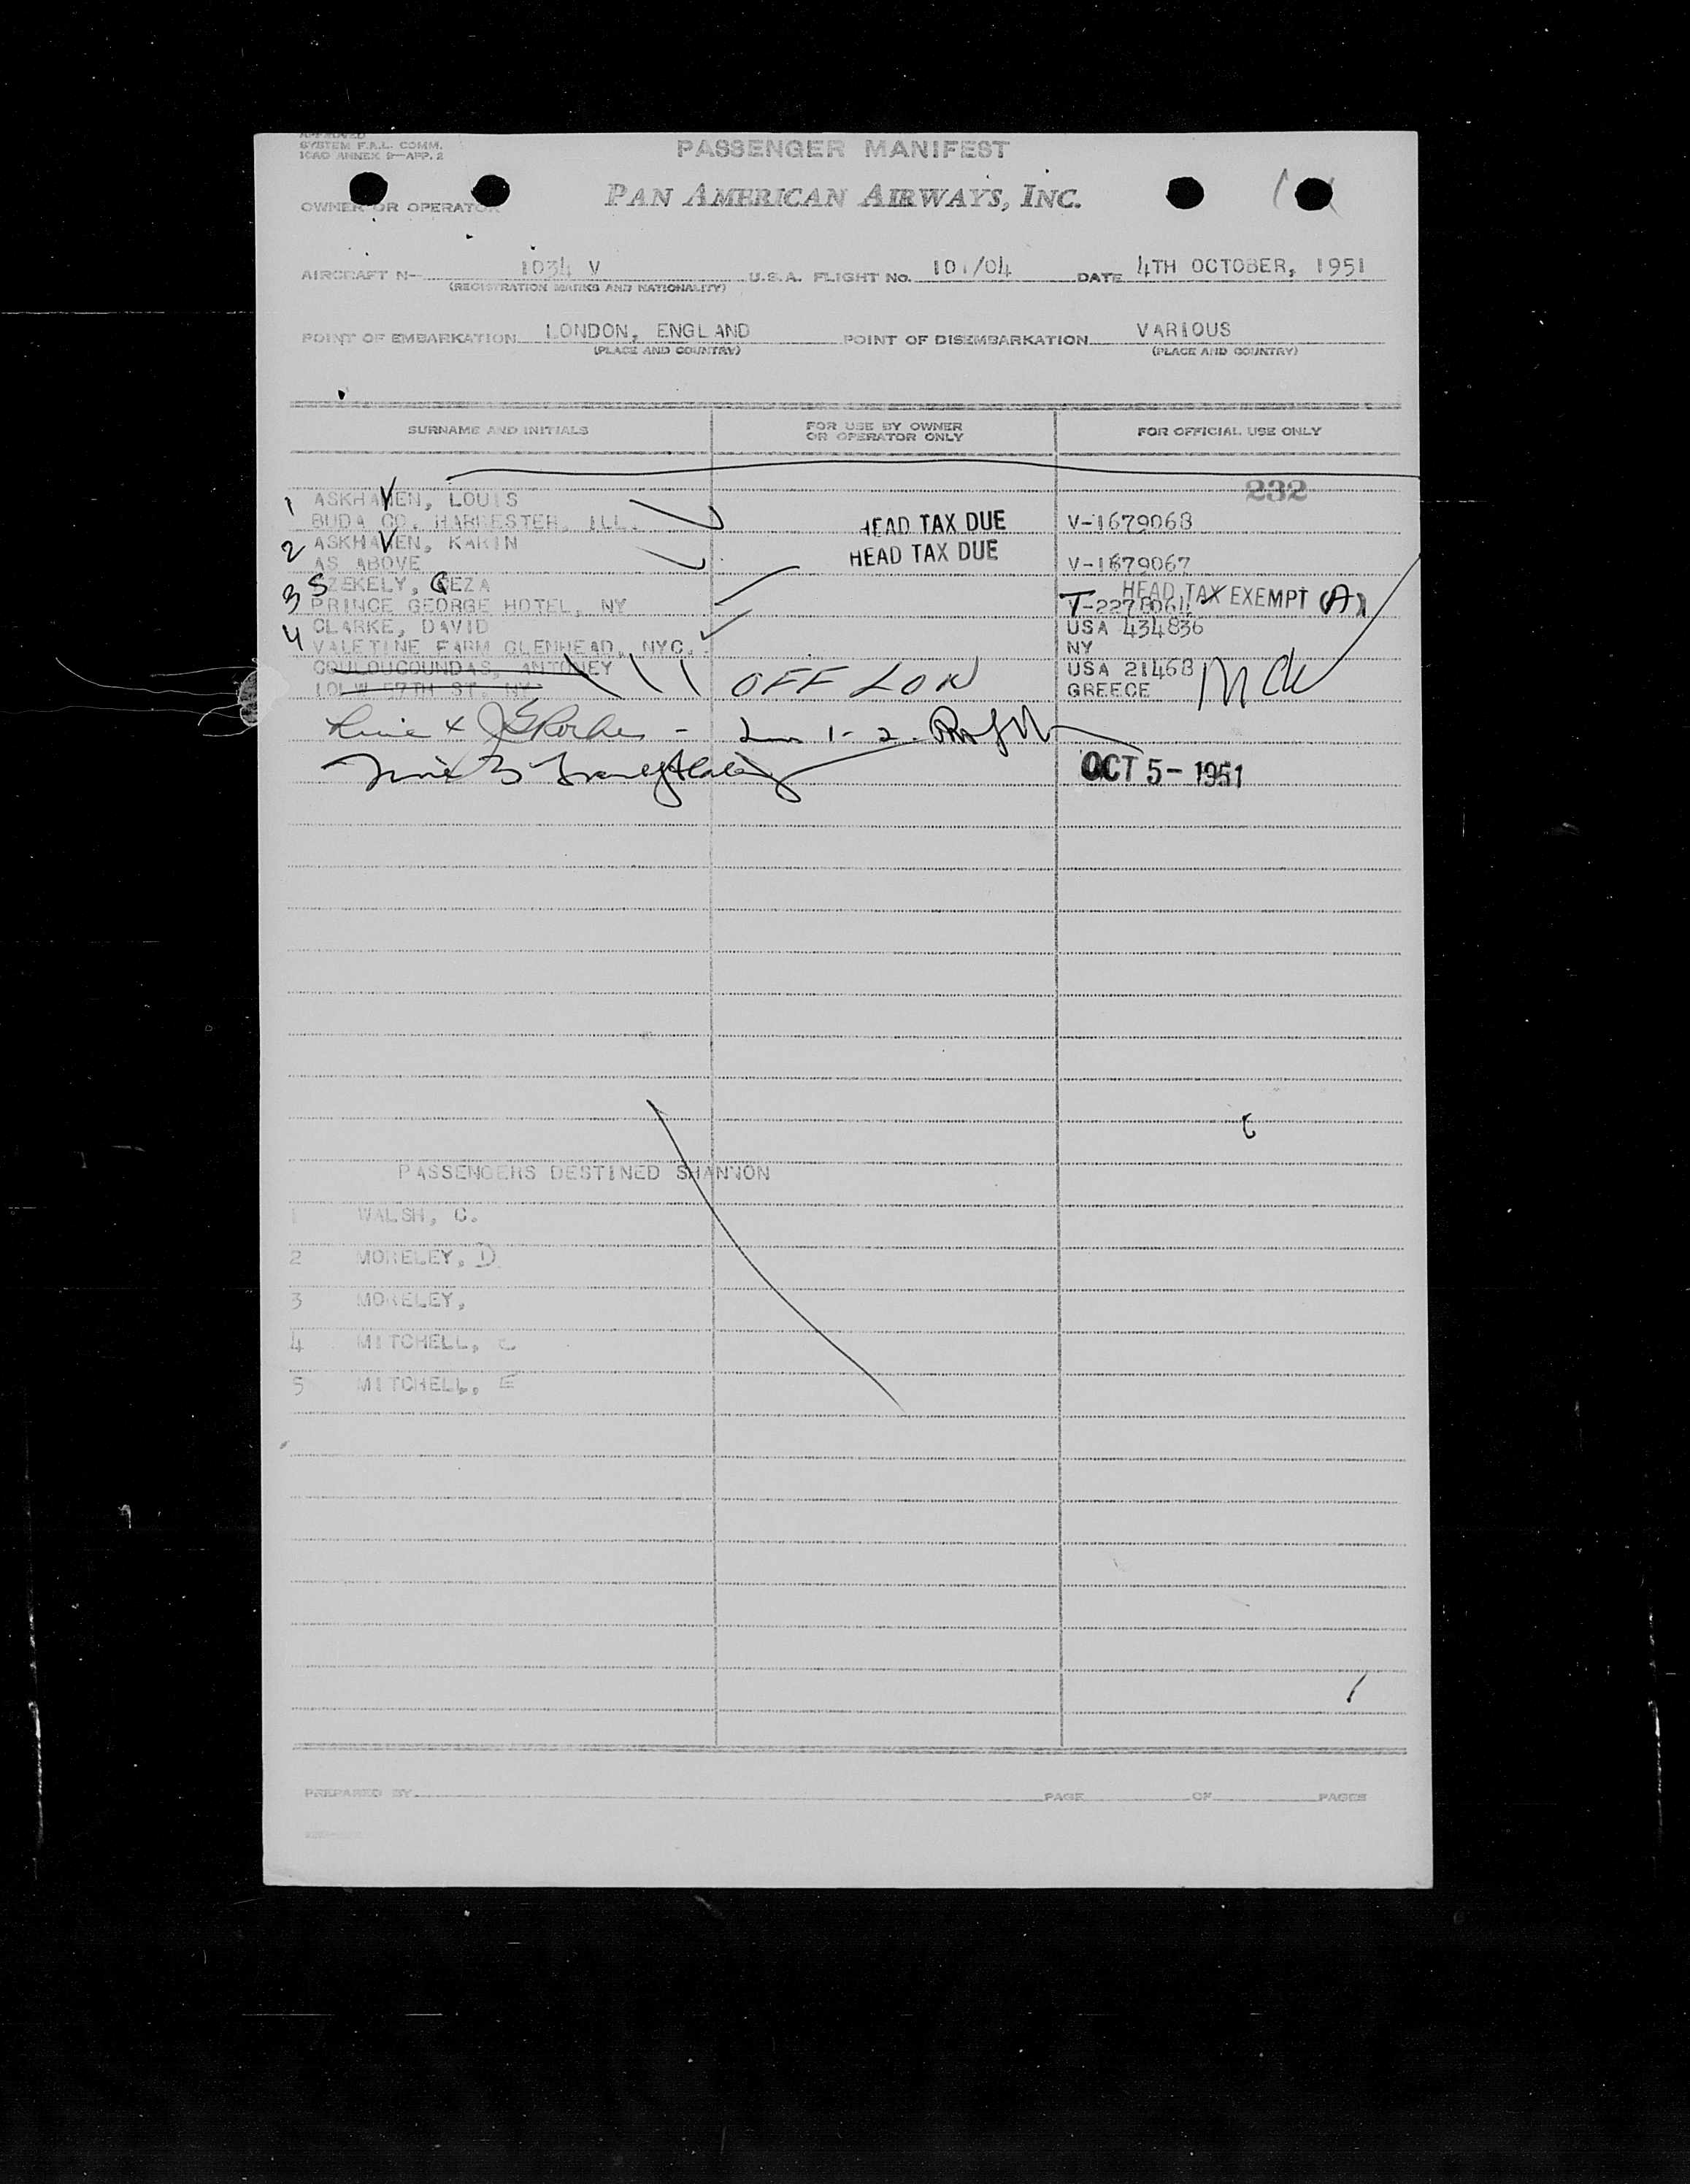 APPROVED
SYSTEM F.A.L. COMM.
ICAO ANNEX 9—APP. 2
PASSENGER MANIFEST
OWNER OR OPERATOR
PAN AMERICAN AIRWAYS, INC.
AIRCRAFT N— 1034 V U.S.A. FLIGHT NO. 101/04 DATE 4TH OCTOBER, 1951
(REGISTRATION MARKS AND NATIONALITY)
POINT OF EMBARKATION LONDON, ENGLAND POINT OF DISEMBARKATION VARIOUS
(PLACE AND COUNTRY) (PLACE AND COUNTRY)
SURNAME AND INITIALS FOR USE BY OWNER OR OPERATOR ONLY FOR OFFICIAL USE ONLY
232
1 ASKHAVEN, LOUIS
BUDA CO. HARVESTER, ILL. HEAD TAX DUE V-1679068
2 ASKHAVEN, KARIN
AS ABOVE HEAD TAX DUE V-1679067
3 SZEKELY, GEZA HEAD TAX EXEMPT (A)
PRINCE GEORGE HOTEL, NY
4 CLARKE, DAVID USA 434836
VALETINE FARM GLENHEAD, NYC. NY
COULOUCOUNDAS, ANTONEY USA 21468
101 W 57TH ST. NY OFF LON GREECE
Line 4
1-2.
Line 3
OCT 5- 1951
PASSENGERS DESTINED SHANNON
1 WALSH, C.
2 MORELEY, D
3 MORELEY,
4 MITCHELL, C
5 MITCHELL, E
PREPARED BY PAGE OF PAGES